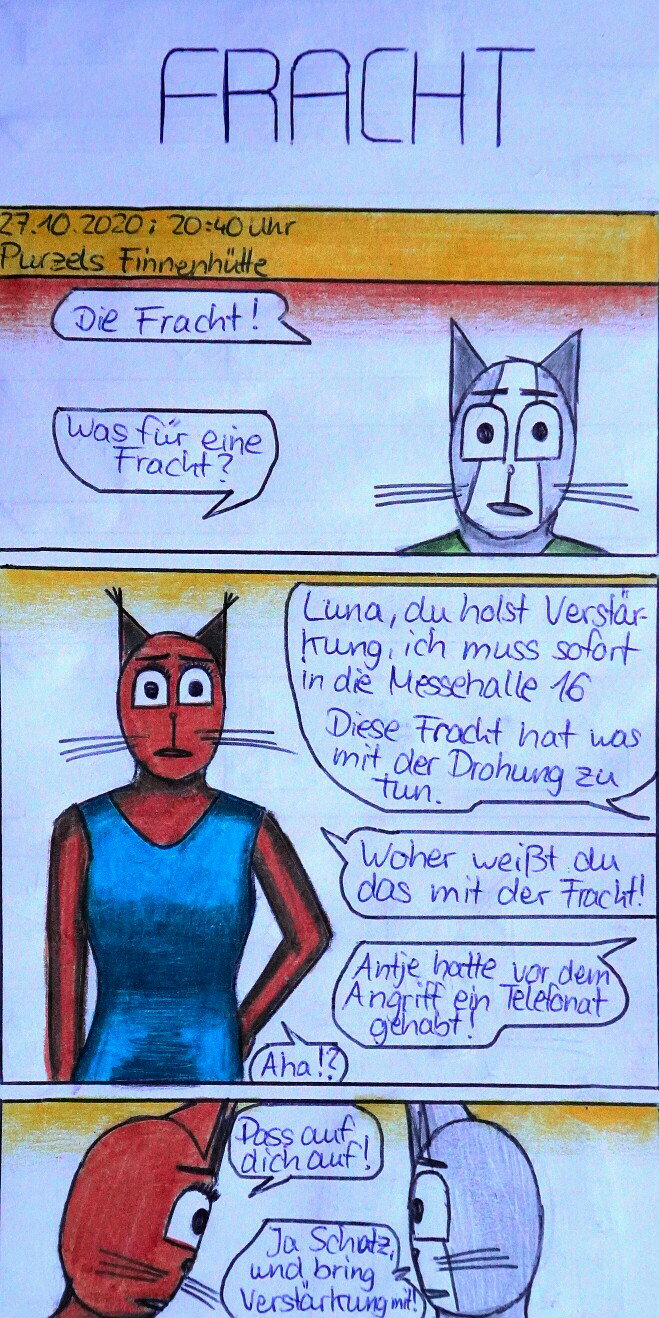 FRACHT
27.10.2020; 20:40 Uhr
Purzels Finnenhütte
Die Fracht!
Was für eine
Fracht?
Luna, du holst Verstär-
kung, ich muss sofort
in die Messehalle 16
Diese Fracht hat was
mit der Drohung zu
tun.
Woher weißt du
das mit der Fracht!
Antje hatte vor dem
Angriff ein Telefonat
gehabt!
Aha!?
Pass auf
dich auf!
Ja Schatz,
und bring
Verstärkung mit!